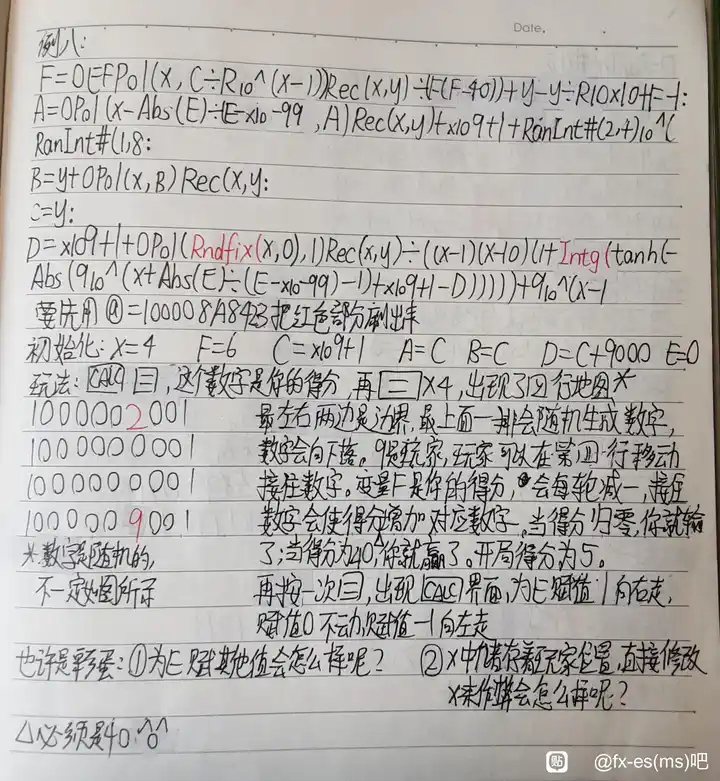 Date.
例八:
F=0EFPol(x, C÷R₁₀^(x-1))Rec(x,y)÷(F(F-40))+y-y÷R10x10+F-1:
A=0Pol(x-Abs(E)÷(E-x10-99, A)Rec(x,y)+x10 9+1+RanInt#(2,4)₁₀^(
RanInt#(1,8:
B=y+0Pol(x,B)Rec(x,y:
C=y:
D=x10 9+1+0Pol(Rndfix(x,0),1)Rec(x,y)÷((x-1)(x-10)(1+Intg(tanh(-
Abs(9₁₀^(x+Abs(E)÷(E-x10-99)-1)+x10 9+1-D)))))+9₁₀^(x-1
要先用@=100008A8423把红色部分刷出来
初始化: x=4 F=6 C=x10 9+1 A=C B=C D=C+9000 E=0
玩法: CALC 三, 这个数字是你的得分, 再三x4, 出现了四行地图*
1000002001 最左右两边是边界,最上面一排会随机生成数字,
1000000001 数字会向下落。9是玩家,玩家可以在第四行移动
1000000001 接住数字。变量F是你的得分,会每轮减一,接住
1000009001 数字会使得分增加对应数字。当得分归零,你就输
*数字是随机的, 了;当得分为40△,你就赢了。开局得分为5。
不一定如图所示 再按一次三,出现CALC界面,为E赋值1向右走,
赋值0不动,赋值-1向左走
也许是彩蛋:①为E赋其他值会怎么样呢? ②x中储存着玩家位置,直接修改
x来作弊会怎么样呢?
△必须是40 ^o^
贴 @fx-es(ms)吧